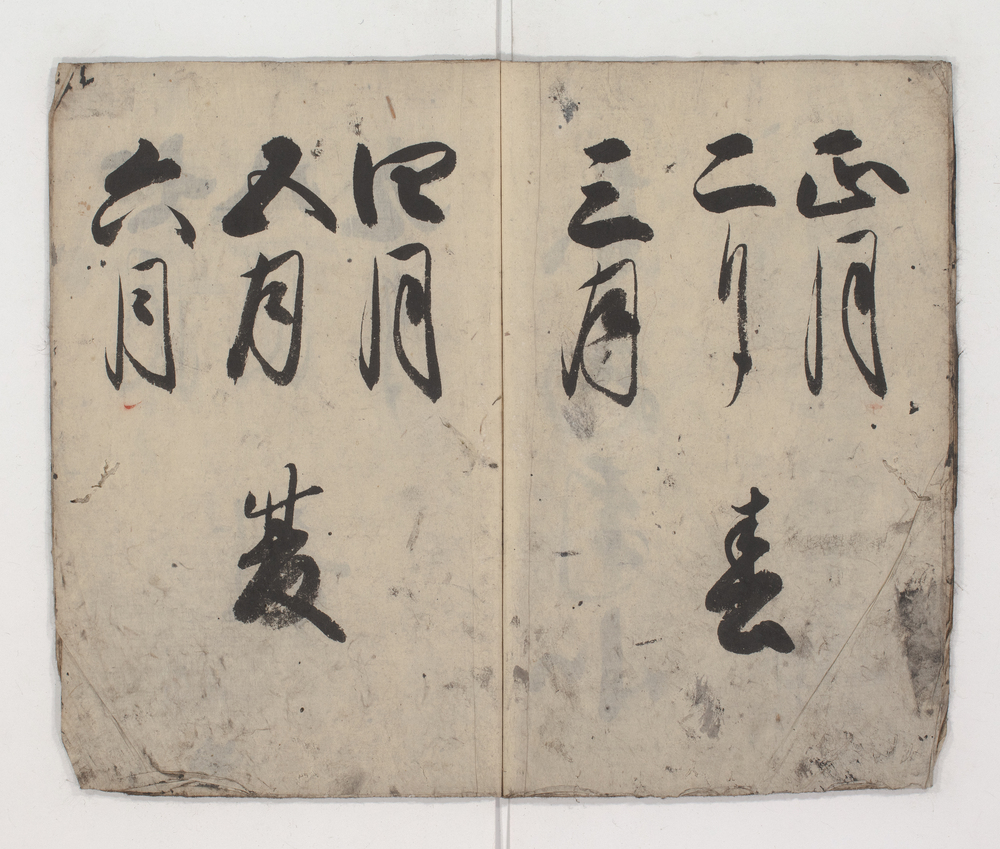 正月
二月
三月
春
四月
五月
六月
夏